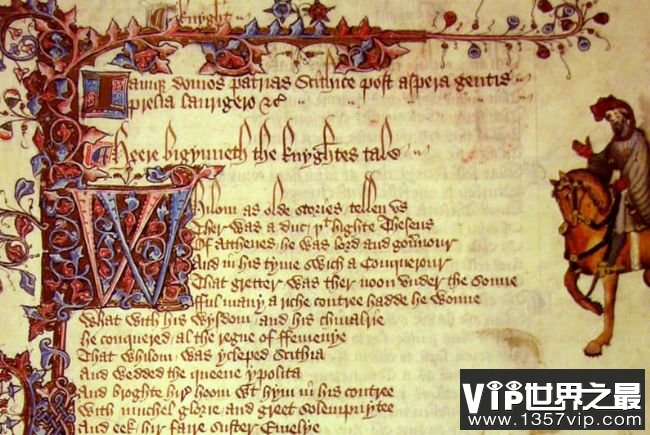 Knyght
Iamque domos patrias Scithice post aspera gentis
prelia laurigero &c
Heere bigynneth the knyghtes tale
Whilom as olde stories tellen vs
Ther was a duc þt highte Theseus
Of Atthenes he was lord and gouernour
And in his tyme swich a Conquerour
That gretter was ther noon vnder the sonne
fful many a riche contree hadde he wonne
What with his wysdom and his chiualrie
He conquered al the regne of ffemenye
That whilom was ycleped Scithia
And wedded the queene ypolita
And broghte hir hoom wt hym in his contree
With muchel glorie and greet solempnytee
And eek hir faire suster Emelye
VIP世界之最
www.1357vip.com